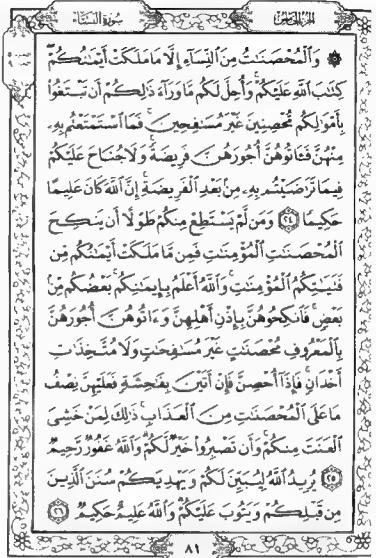 الجزء الخامس
سورة النساء
وَالْمُحْصَنَاتُ مِنَ النِّسَاءِ إِلَّا مَا مَلَكَتْ أَيْمَانُكُمْ
كِتَابَ اللَّهِ عَلَيْكُمْ وَأُحِلَّ لَكُم مَّا وَرَاءَ ذَٰلِكُمْ أَن تَبْتَغُوا
بِأَمْوَالِكُم مُّحْصِنِينَ غَيْرَ مُسَافِحِينَ فَمَا اسْتَمْتَعْتُم بِهِ
مِنْهُنَّ فَآتُوهُنَّ أُجُورَهُنَّ فَرِيضَةً وَلَا جُنَاحَ عَلَيْكُمْ
فِيمَا تَرَاضَيْتُم بِهِ مِن بَعْدِ الْفَرِيضَةِ إِنَّ اللَّهَ كَانَ عَلِيمًا
حَكِيمًا ٢٤ وَمَن لَّمْ يَسْتَطِعْ مِنكُمْ طَوْلًا أَن يَنكِحَ
الْمُحْصَنَاتِ الْمُؤْمِنَاتِ فَمِن مَّا مَلَكَتْ أَيْمَانُكُم مِّن
فَتَيَاتِكُمُ الْمُؤْمِنَاتِ وَاللَّهُ أَعْلَمُ بِإِيمَانِكُم بَعْضُكُم مِّن
بَعْضٍ فَانكِحُوهُنَّ بِإِذْنِ أَهْلِهِنَّ وَآتُوهُنَّ أُجُورَهُنَّ
بِالْمَعْرُوفِ مُحْصَنَاتٍ غَيْرَ مُسَافِحَاتٍ وَلَا مُتَّخِذَاتِ
أَخْدَانٍ فَإِذَا أُحْصِنَّ فَإِنْ أَتَيْنَ بِفَاحِشَةٍ فَعَلَيْهِنَّ نِصْفُ
مَا عَلَى الْمُحْصَنَاتِ مِنَ الْعَذَابِ ذَٰلِكَ لِمَنْ خَشِيَ
الْعَنَتَ مِنكُمْ وَأَن تَصْبِرُوا خَيْرٌ لَّكُمْ وَاللَّهُ غَفُورٌ رَّحِيمٌ
٢٥ يُرِيدُ اللَّهُ لِيُبَيِّنَ لَكُمْ وَيَهْدِيَكُمْ سُنَنَ الَّذِينَ
مِن قَبْلِكُمْ وَيَتُوبَ عَلَيْكُمْ وَاللَّهُ عَلِيمٌ حَكِيمٌ ٢٦
٨١